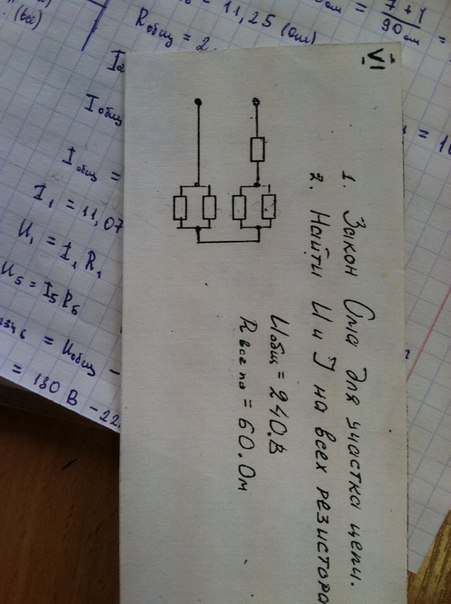 VI
1. Закон Ома для участка цепи.
2. Найти U и J на всех резистора
Uобщ = 240.В
R все по = 60.Ом
(Вы)
Rобщ = 2
11,25 (Ом)
7+1
90 Ом
Iобщ
Iобщ =
I₁ = 11,07
U₁ = I₁ R₁
U₅ = I₅ R₅
= Uобщ -
= 180 В - 22